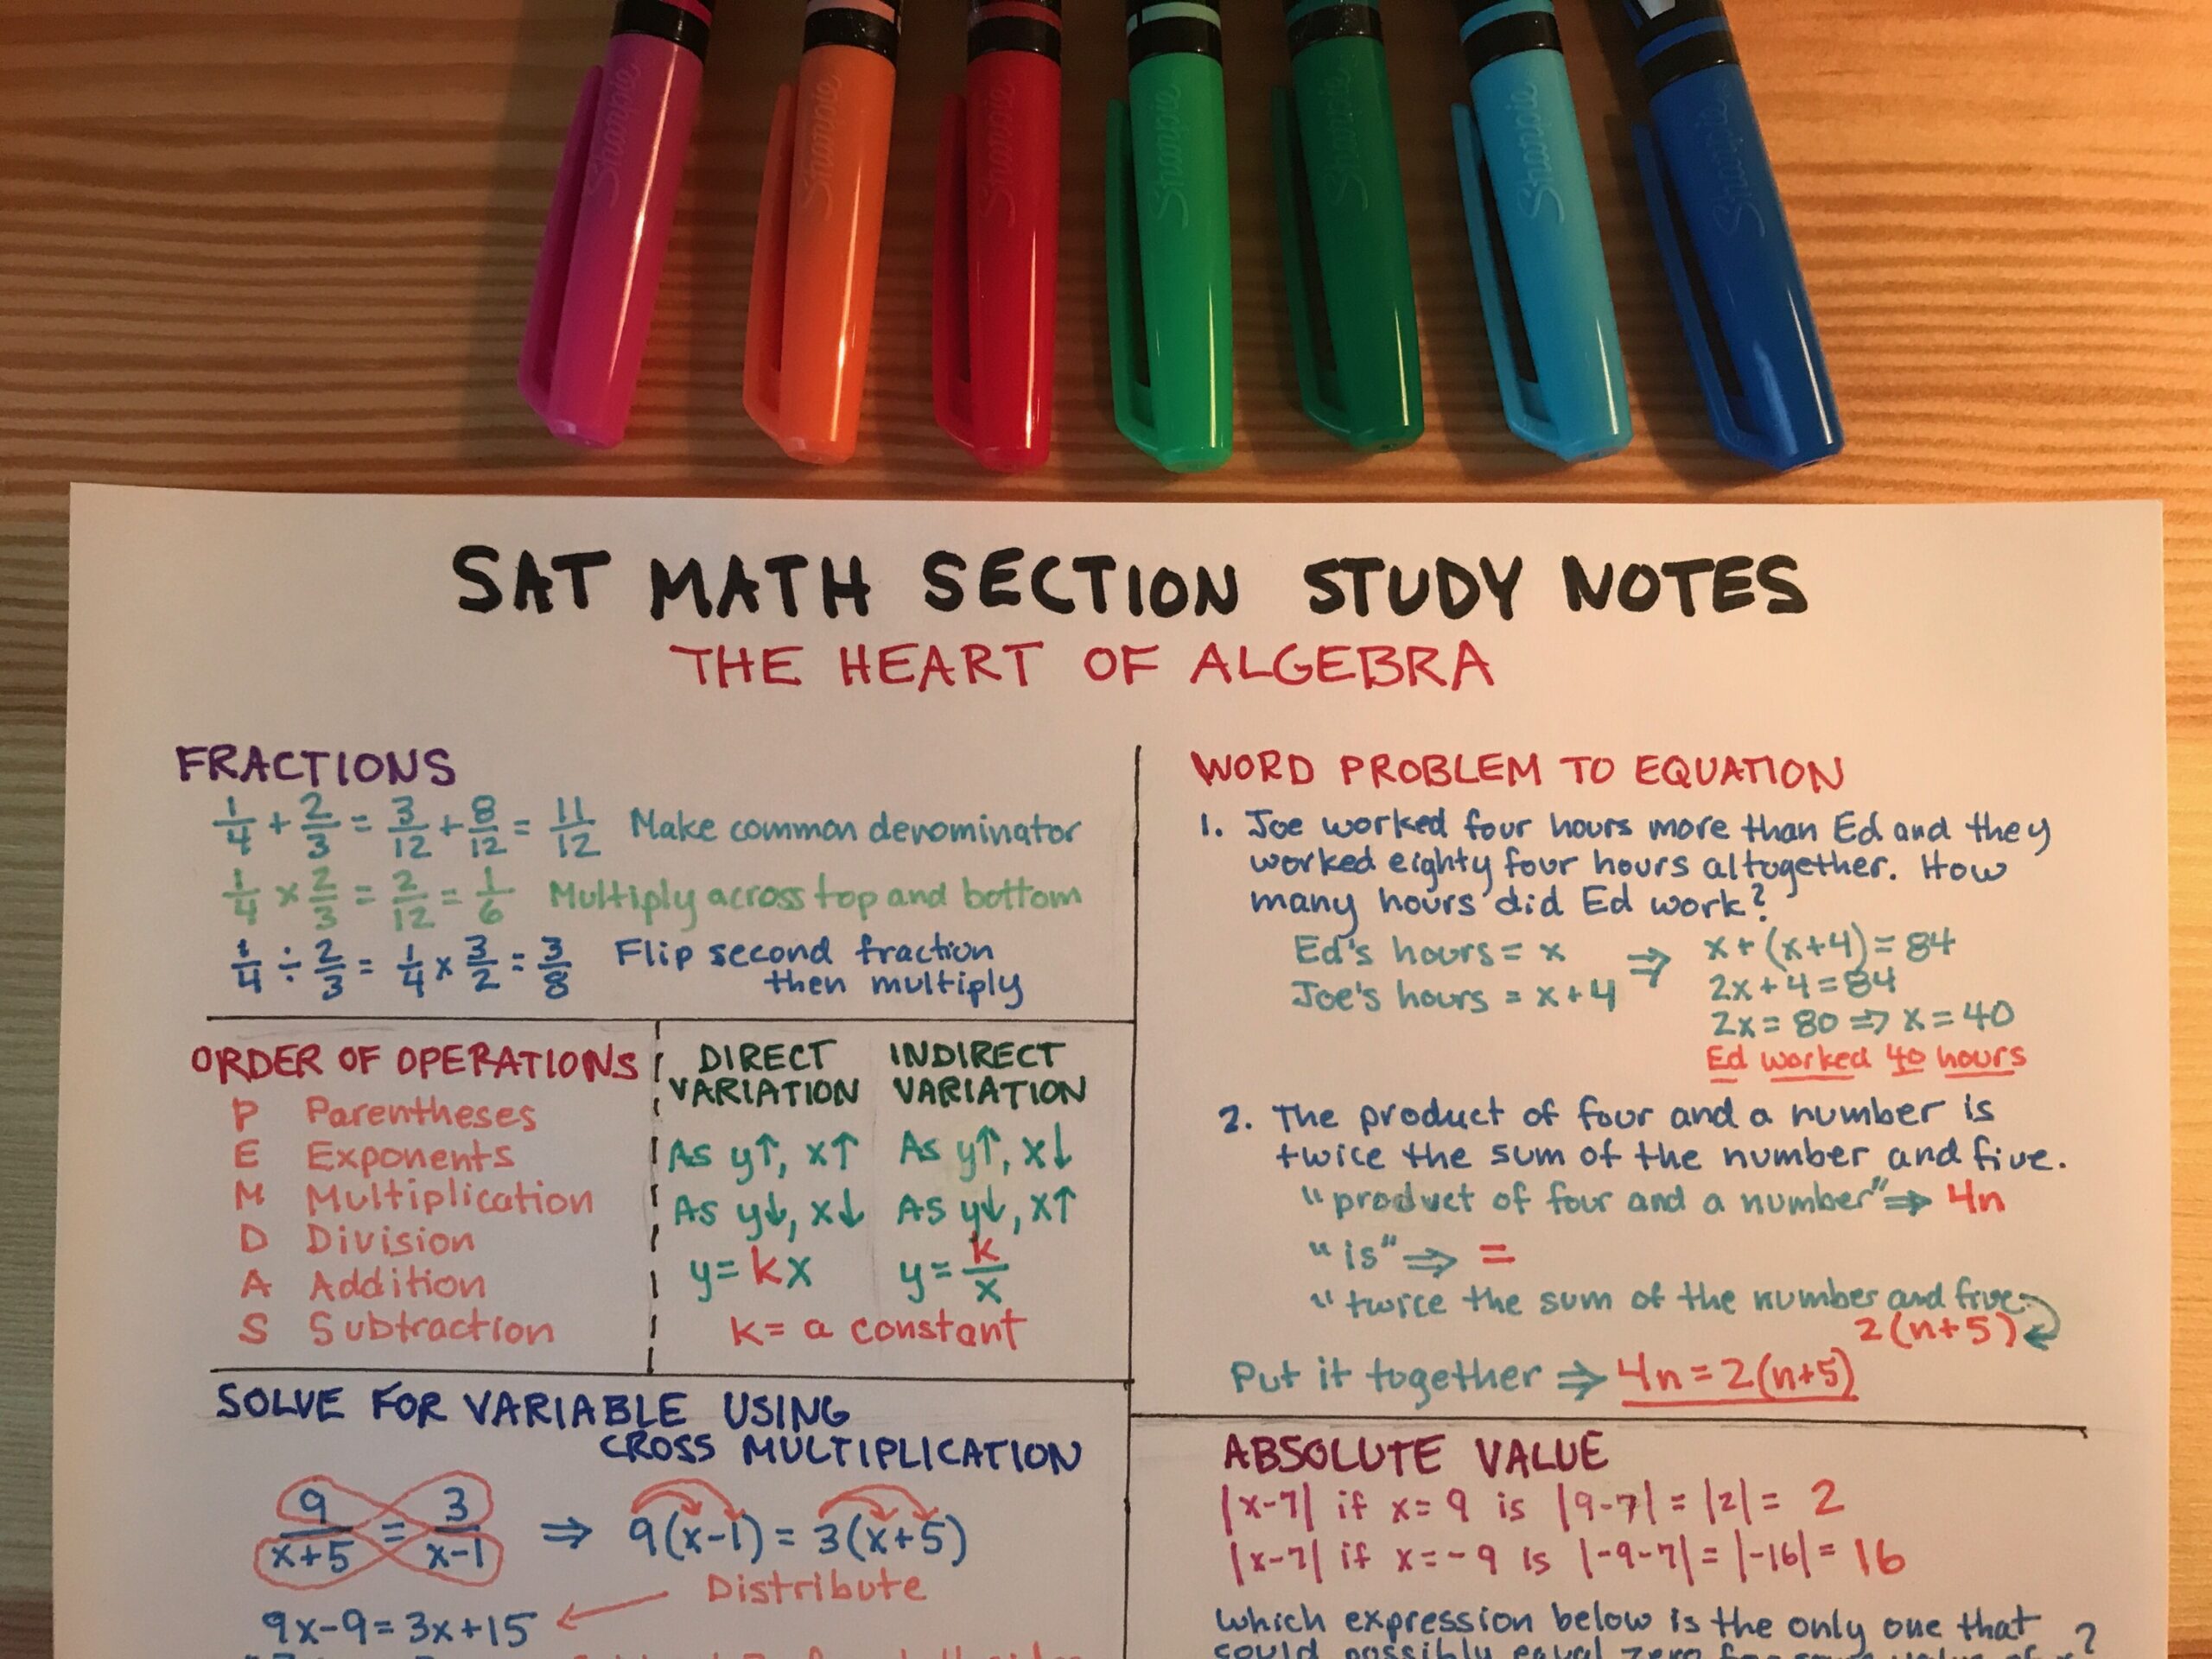 Sharpie Sharpie Sharpie Sharpie Sharpie Sharpie Sharpie
SAT MATH SECTION STUDY NOTES
THE HEART OF ALGEBRA
FRACTIONS
1/4 + 2/3 = 3/12 + 8/12 = 11/12 Make common denominator
1/4 × 2/3 = 2/12 = 1/6 Multiply across top and bottom
1/4 ÷ 2/3 = 1/4 × 3/2 = 3/8 Flip second fraction
then multiply
ORDER OF OPERATIONS
P Parentheses
E Exponents
M Multiplication
D Division
A Addition
S Subtraction
DIRECT VARIATION
As y↑, x↑
As y↓, x↓
y = kx
INDIRECT VARIATION
As y↑, x↓
As y↓, x↑
y = k/x
k = a constant
SOLVE FOR VARIABLE USING
CROSS MULTIPLICATION
9/(x+5) = 3/(x-1) ⇒ 9(x-1) = 3(x+5)
Distribute
9x-9 = 3x+15
WORD PROBLEM TO EQUATION
1. Joe worked four hours more than Ed and they
worked eighty four hours altogether. How
many hours did Ed work?
Ed's hours = x ⇒ x + (x+4) = 84
Joe's hours = x + 4 2x + 4 = 84
2x = 80 ⇒ x = 40
Ed worked 40 hours
2. The product of four and a number is
twice the sum of the number and five.
"product of four and a number" ⇒ 4n
"is" ⇒ =
"twice the sum of the number and five
2(n+5)
Put it together ⇒ 4n = 2(n+5)
ABSOLUTE VALUE
|x-7| if x = 9 is |9-7| = |2| = 2
|x-7| if x = -9 is |-9-7| = |-16| = 16
Which expression below is the only one that
could possibly equal zero for some value of x?